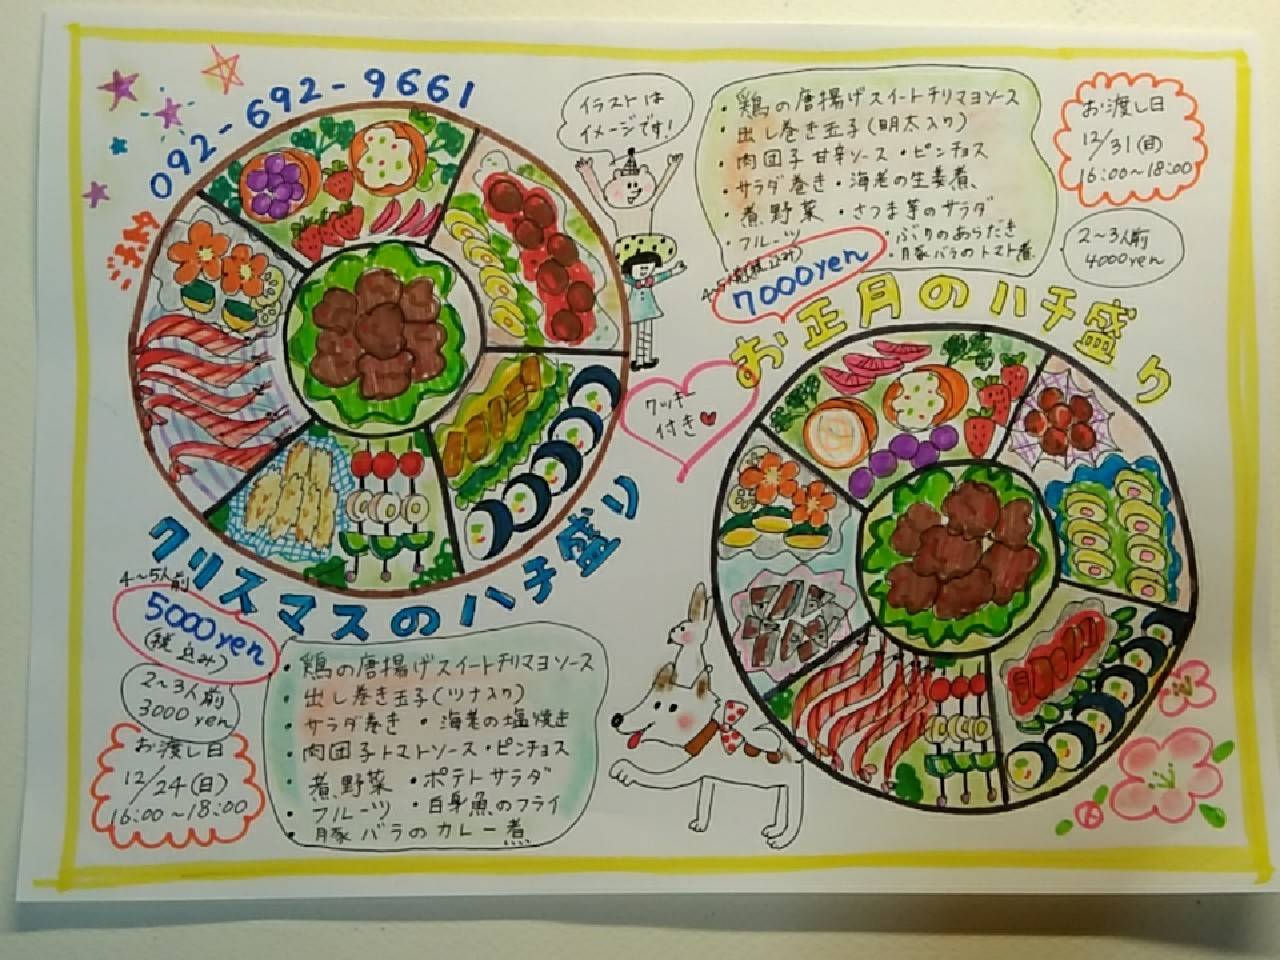 092-692-9661
ご予約
イラストは
イメージです!
・鶏の唐揚げスイートチリマヨソース
・出し巻き玉子(明太入り)
・肉団子甘辛ソース・ピンチョス
・サラダ巻き・海老の生姜煮
・煮野菜・さつま芋のサラダ
・フルーツ・ぶりのあらだき
・豚バラのトマト煮
お渡し日
12/31(日)
16:00~18:00
2~3人前
4000yen
4~5人前(税込み)
7000yen
お正月のハチ盛り
クッキー
付き
クリスマスのハチ盛り
4~5人前
5000yen
(税込み)
2~3人前
3000yen
お渡し日
12/24(日)
16:00~18:00
・鶏の唐揚げスイートチリマヨソース
・出し巻き玉子(ツナ入り)
・サラダ巻き・海老の塩焼き
・肉団子トマトソース・ピンチョス
・煮野菜・ポテトサラダ
・フルーツ・白身魚のフライ
・豚バラのカレー煮